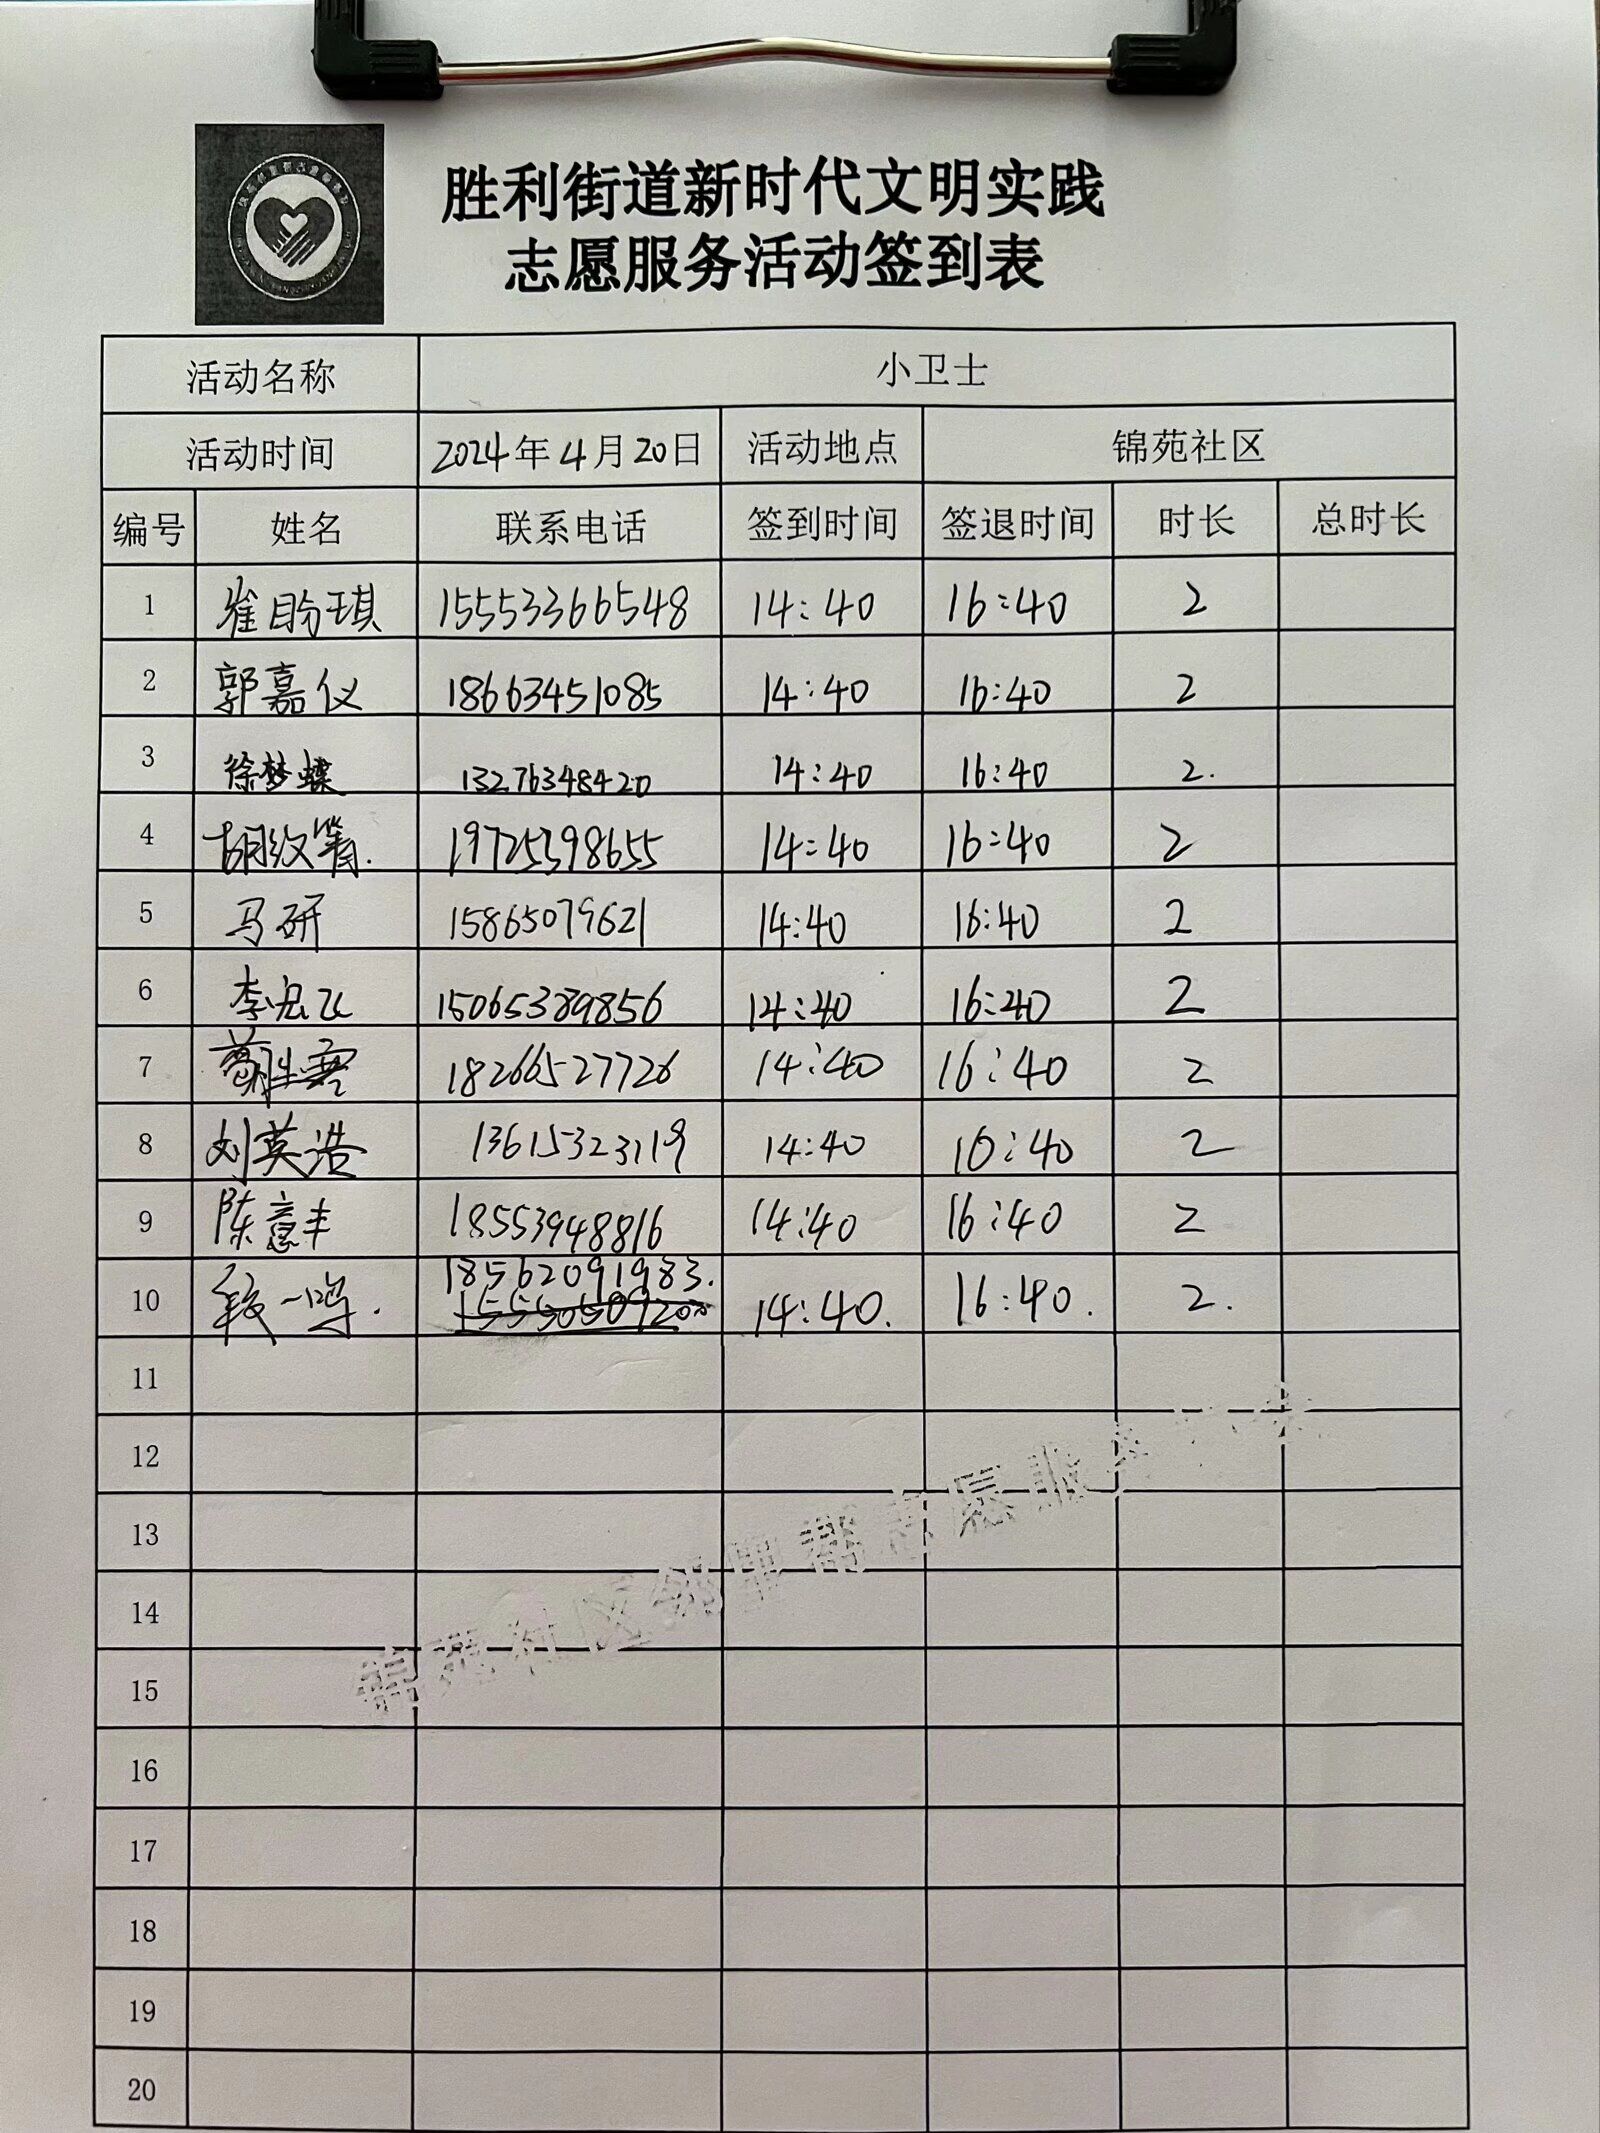 胜利街道新时代文明实践
志愿服务活动签到表
活动名称 小卫士
活动时间 2024年4月20日 活动地点 锦苑社区
编号 姓名 联系电话 签到时间 签退时间 时长 总时长
1 崔盼琪 15553366548 14:40 16:40 2
2 郭嘉仪 18663451085 14:40 16:40 2
3 徐梦蝶 13276348420 14:40 16:40 2.
4 胡纹箐. 19725398655 14:40 16:40 2
5 马研 15865079621 14:40 16:40 2
6 李宏飞 15065389856 14:40 16:40 2
7 18266527726 14:40 16:40 2
8 刘英浩 13615323119 14:40 16:40 2
9 陈意丰 18553948816 14:40 16:40 2
10 段一鸣. 18562091983. 14:40. 16:40. 2.
11
12
13
14
15
16
17
18
19
20
锦苑社区邻里帮志愿服务